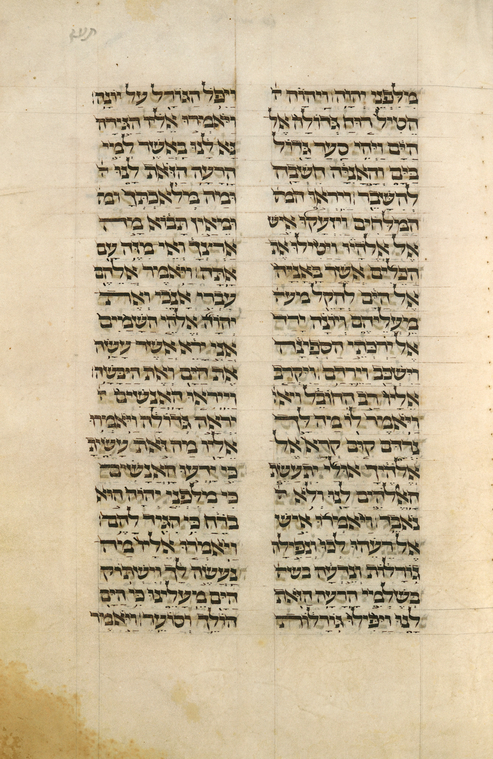 מלפני יהוה ויהוה
הטיל רוח גדולה אל
הים ויהי סער גדול
בים והאניה חשבה
להשבר וייראו
המלחים ויזעקו איש
אל אלהיו ויטילו את
הכלים אשר באניה
אל הים להקל
מעליהם ויונה ירד
אל ירכתי הספינה
וישכב וירדם ויקרב
אליו רב החובל
ויאמר לו מה לך
נרדם קום קרא אל
אלהיך אולי יתעשת
האלהים לנו ולא
נאבד ויאמרו איש
אל רעהו לכו ונפילה
גורלות ונדעה
בשלמי הרעה הזאת
לנו ויפילו גורלות
ויפל הגורל על יונה
ויאמרו אליו הגידה
נא לנו באשר למי
הרעה הזאת לנו
מה מלאכתך
ומאין תבוא מה
ארצך ואי מזה עם
אתה ויאמר אליהם
עברי אנכי ואת
יהוה אלהי השמים
אני ירא אשר עשה
את הים ואת היבשה
וייראו האנשים
יראה גדולה ויאמרו
אליו מה זאת עשית
כי ידעו האנשים
כי מלפני יהוה הוא
ברח כי הגיד להם
ויאמרו אליו מה
נעשה לך וישתוק
הים מעלינו כי הים
הולך וסוער ויאמר